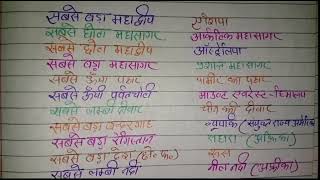 सबसे बड़ा महाद्वीप एशिया
सबसे छोटा महासागर आर्कटिक महासागर
सबसे छोटा महाद्वीप ऑस्ट्रेलिया
सबसे बड़ा महासागर प्रशान्त महासागर
सबसे ऊँचा पठार पामीर का पठार
सबसे ऊँची पर्वतचोटी माउन्ट एवरेस्ट-हिमालय
सबसे लम्बी दीवार चीन की दीवार
सबसे बड़ा बन्दरगाह न्यूयार्क (संयुक्त राज्य अमेरिका)
सबसे बड़ा रेगिस्तान सहारा (अफ्रीका)
सबसे बड़ा देश (क्षे० फ०) रूस
सबसे लम्बी नदी नील नदी (अफ्रीका)